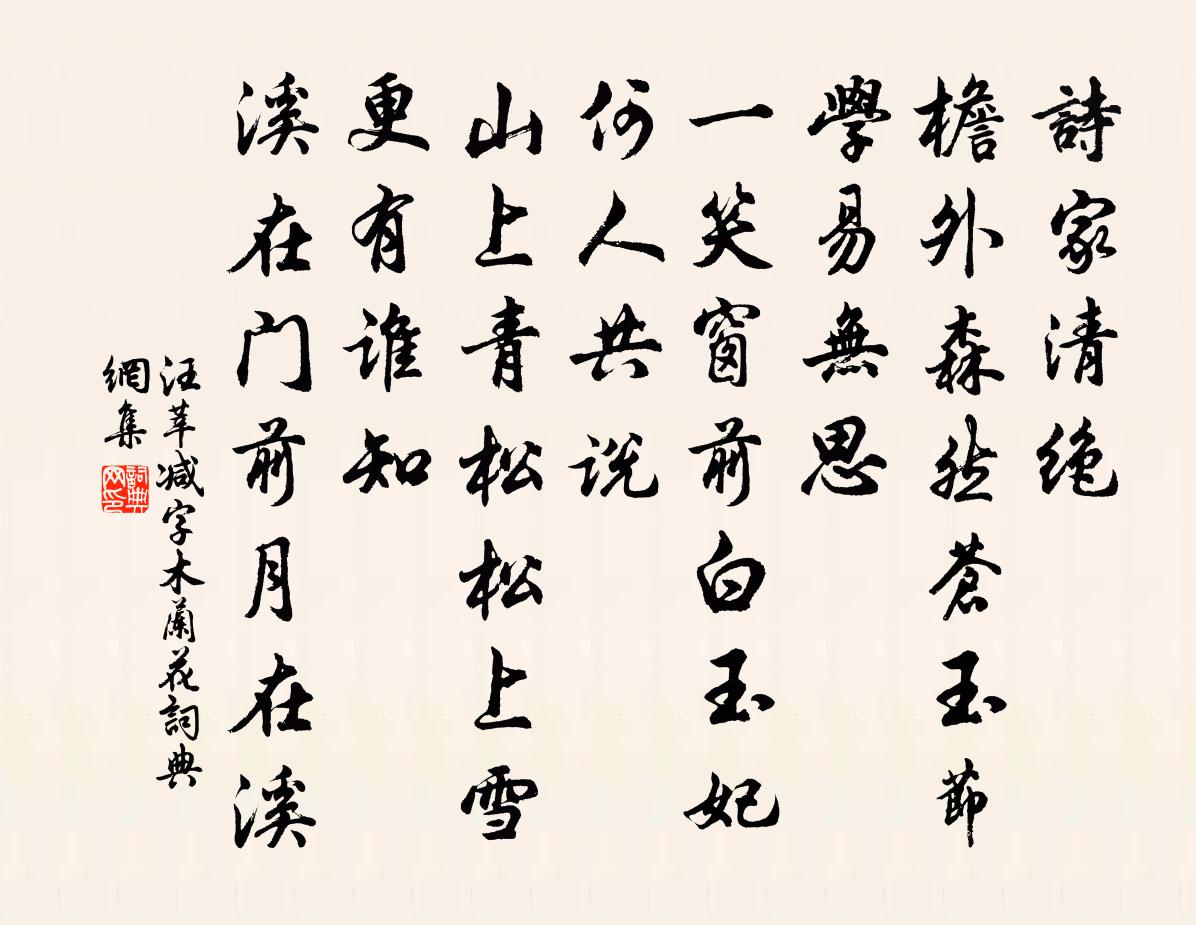 詩家清絶
檐外森然蒼玉節
學易無思
一笑窗前白玉妃
何人共説
山上青松松上雪
更有誰知
溪在門前月在溪
汪莘減字木蘭花詞典
網集
詞典
网印